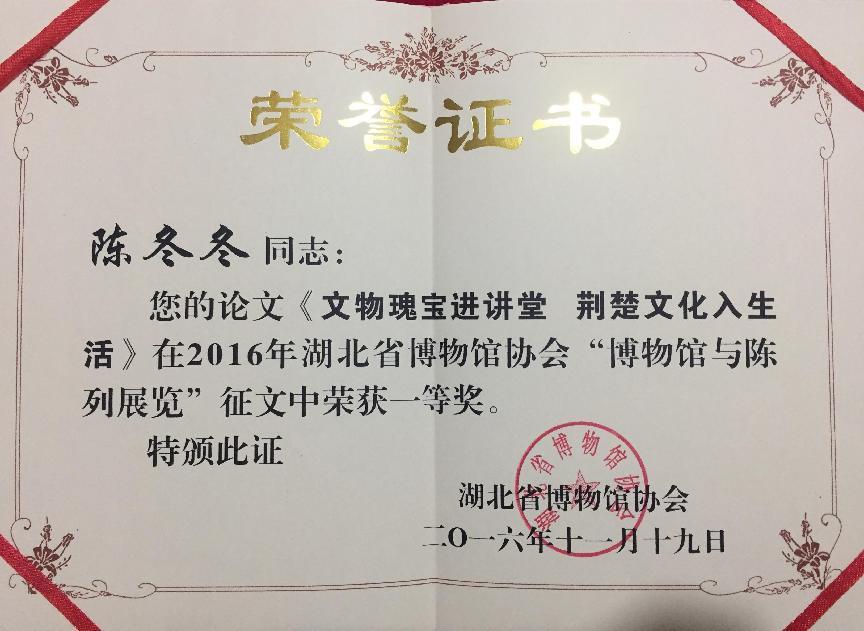 荣誉证书
陈冬冬 同志：
您的论文《文物瑰宝进讲堂 荆楚文化入生
活》在2016年湖北省博物馆协会“博物馆与陈
列展览”征文中荣获一等奖。
特颁此证
湖北省博物馆协会
湖北省博物馆协会
二〇一六年十一月十九日